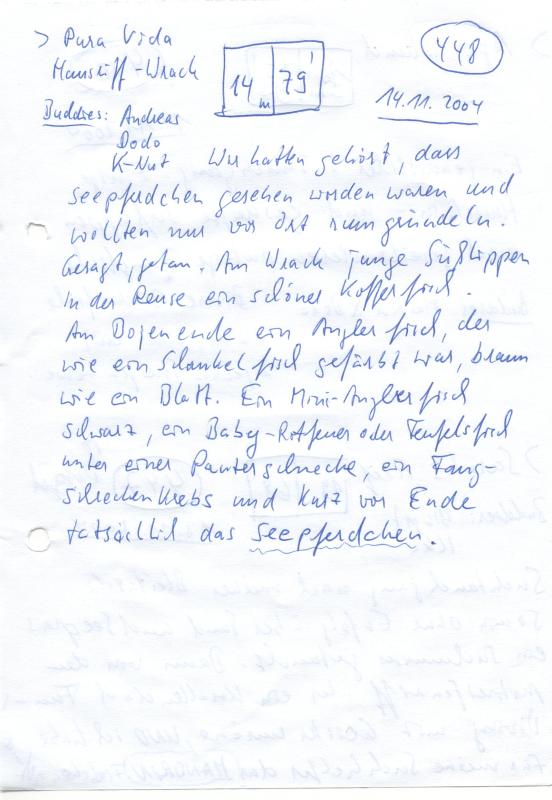 > Pura Vida
Hausriff-Wrack
14 m
79'
448
14.11.2004
Buddies: Andreas
Dodo
K-Nut Wir hatten gehört, dass
Seepferdchen gesehen worden waren und
wollten nur vor Ort rumgründeln.
Gesagt, getan. Am Wrack junge Süßlippen
In der Reuse ein schöner Kofferfisch.
Am Bojenende ein Anglerfisch, der
wie ein Schaukelfisch gefärbt war, braun
wie ein Blatt. Ein Mini-Anglerfisch
schwarz, ein Baby-Rotfeuer oder Teufelsfisch
unter einer Panterschnecke, ein Fang-
schreckenkrebs und kurz vor Ende
tatsächlich das Seepferdchen.